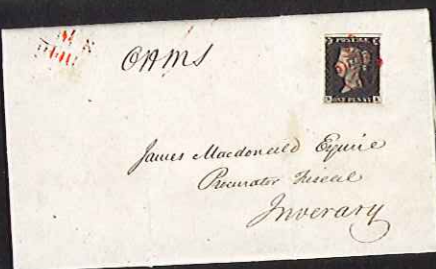 OHMS
POSTAGE
ONE PENNY
James Macdonald Esquire
Procurator Fiscal
Inverary